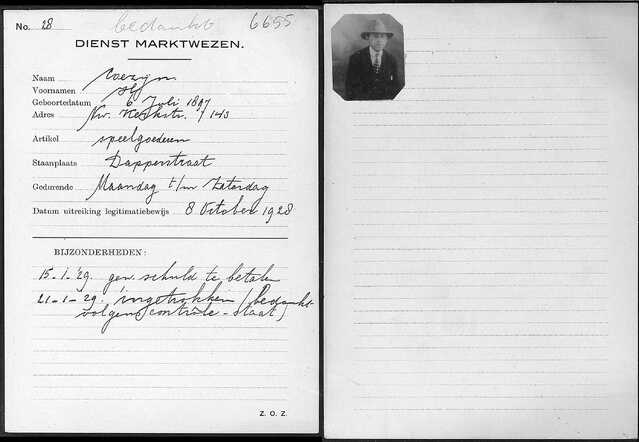 No. 28 bedankt 6655
DIENST MARKTWEZEN.
Naam
Voornamen
Geboortedatum 6 Juli 1897
Adres Nw. Kerkstr. 143
Artikel speelgoederen
Staanplaats Dapperstraat
Gedurende Maandag t/m Zaterdag
Datum uitreiking legitimatiebewijs 8 October 1928
BIJZONDERHEDEN:
15-1-'29. gen. schuld te betalen
21-1-29. ingetrokken (bedankt
volgens contrôle-staat)
Z. O. Z.